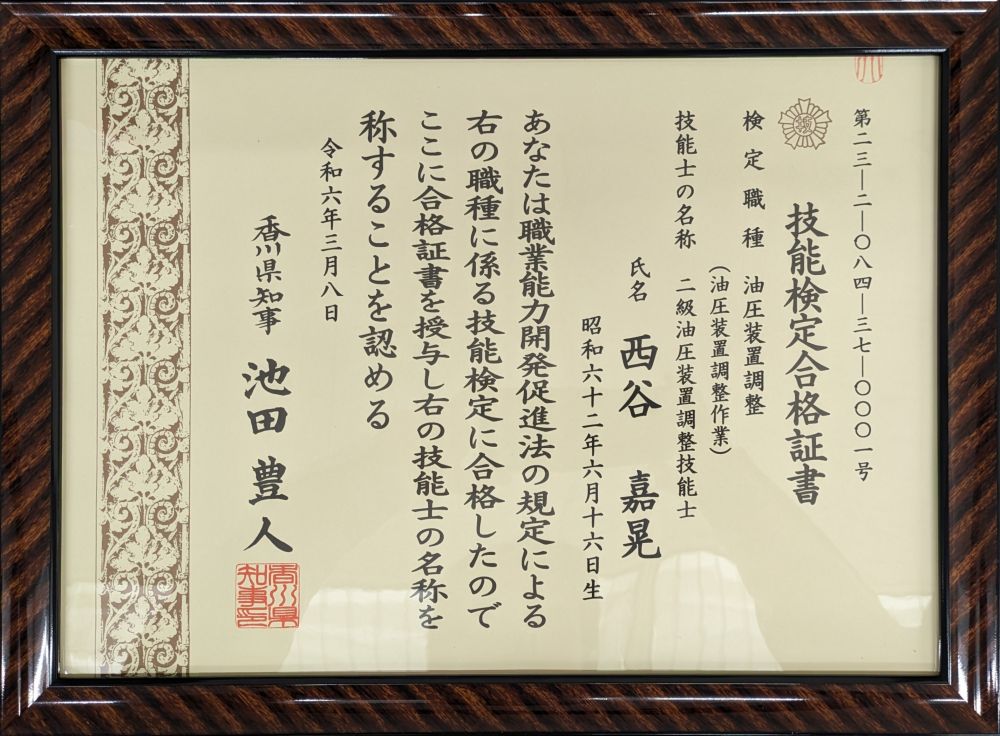 第二三―二―〇八四―三七―〇〇〇一号
技能検定合格証書
検定職種 油圧装置調整
(油圧装置調整作業)
技能士の名称 二級油圧装置調整技能士
氏名 西谷 嘉晃
昭和六十二年六月十六日生
あなたは職業能力開発促進法の規定による
右の職種に係る技能検定に合格したので
ここに合格証書を授与し右の技能士の名称を
称することを認める
令和六年三月八日
香川県知事 池田豊人
香川県
知事印